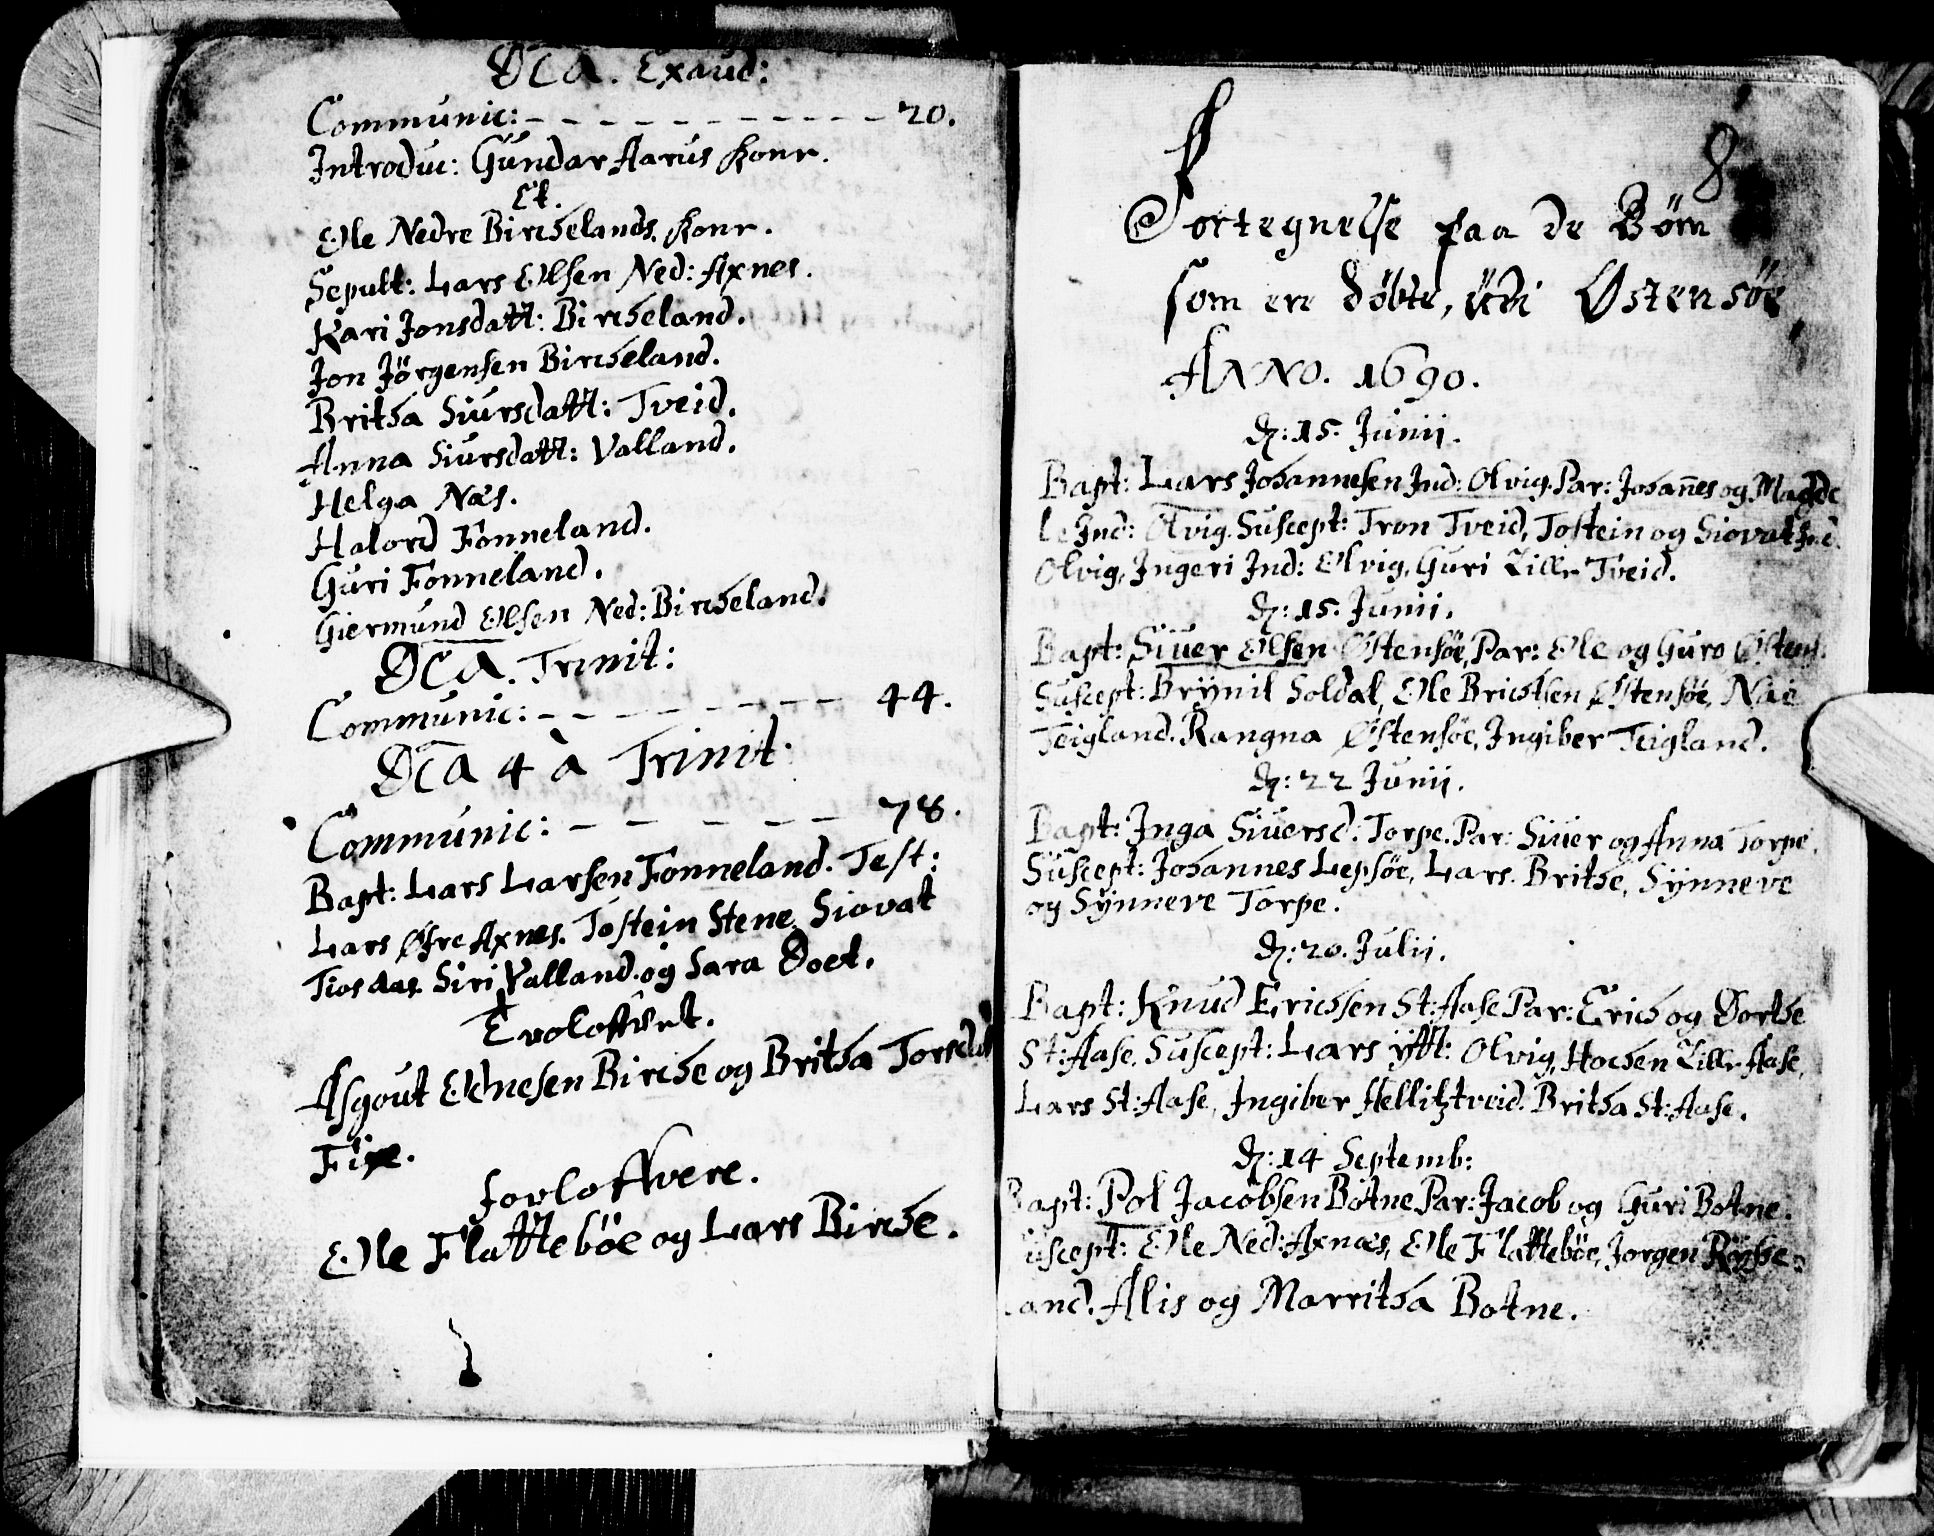 Dca. Exaud:
Communic: - - - - - - - - - - - 20.
Introduc: Gundar Aarus Konr.
Et.
Ole Nedre Birchelands Konr.
Sepult: Lars Olsen Ned: Axnes.
Kari Jonsdatt: Bircheland.
Jon Jörgensen Bircheland.
Britha Siursdatt: Tveid.
Anna Siursdatt: Valland.
Helga Næs.
Halord Fonneland.
Guri Fonneland.
Giermund Olsen Ned: Bircheland.
Dca. Trinit:
Communic: - - - - - - - - 44.
Dca 4 à Trinit:
Communic: - - - - - 78.
Bapt: Lars Larsen Fonneland. Test:
Lars Øfre Axnes. Tostein Stene. Siovat
Tiosaas. Siri Valland. og Sara Doet.
Trolofvet.
Asgout Ednesen Birche og Britha Torsdat
Fixe.
forlofvere.
Ole Flatteböe og Lars Birche.
8
Fortegnelse paa de Börn
som ere döbte, udi Østensöe
Anno. 1690.
d: 15. Junij.
Bapt: Lars Johannesen Ind: Olvig. Par: Johannes og Magde
le Ind: Olvig. Suscept: Tron Tveid, Tostein og Siovat Ind.
Olvig, Ingeri Ind: Olvig, Guri Lille Tveid.
d: 15. Junij.
Bapt: Siuer Olsen Østensöe, Par: Ole og Guro Østens.
Suscept: Brynil Soldal, Ole Brichtsen Østensöe,
Teigland. Rangna Østensöe, Ingiber Teigland.
d: 22 Junij.
Bapt: Inga Siuersd: Torpe. Par: Siuer og Anna Torpe.
Suscept: Johannes Lepsöe, Lars. Brithe, Synneve
og Synneve Torpe.
d: 20. Julij.
Bapt: Knud Erichsen St: Aase Par: Erich og Dorthe
St: Aase. Suscept: Lars ytt: Olvig, Hochen Lille Aase,
Lars St: Aase, Ingiber Hellitztveid. Britha St: Aase.
d: 14 Septemb:
Bapt: Pol Jacobsen Botne Par: Jacob og Guri Botne.
Suscept: Ole Ned: Axnæs, Ole Flattebóe, Jorgen Röyse-
land. Alis og Marritha Botne.